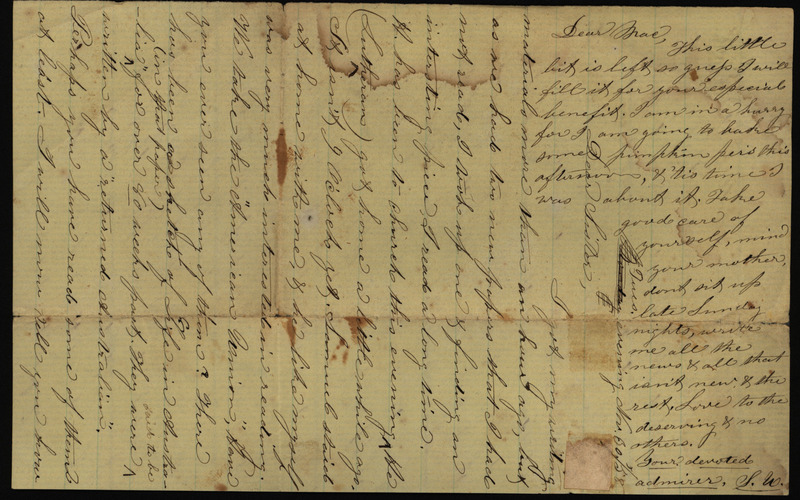 Dear Mac,
This little
bit is left so guess I will
fill it for your especial
benefit. I am in a hurry
for I am going to bake
some pumpkin pies this
afternoon, & 'tis time I
was about it. Take
good care of
yourself, mind
your mother,
dont sit up
late Sunday
nights, write
me all the
news & all that
isn't new & the
rest, Love to the
deserving & no
others.
Your devoted
admirer, S. W.
Tues. evening, Nov. 30
Dear Sister,
I got my writing
materials more than an hour ago, but
as we had two new papers that I had
not read, I took up one & finding an
interesting piece I read a long time.
H has been to church this evening, he
(Lutheran) got home a little while ago.
S and J O'Clock yet, Samuel staid
at home with me, & he like myself
was very much interested in reading.
We take the "American Union", have
you ever seen any of them? There
has been a sketch of "Life in Austra-
(in that paper)
lia" for over 20 weeks past. They were
said to be
written by a "returned Australian".
Perhaps you have read some of them
at least. I will now tell you how